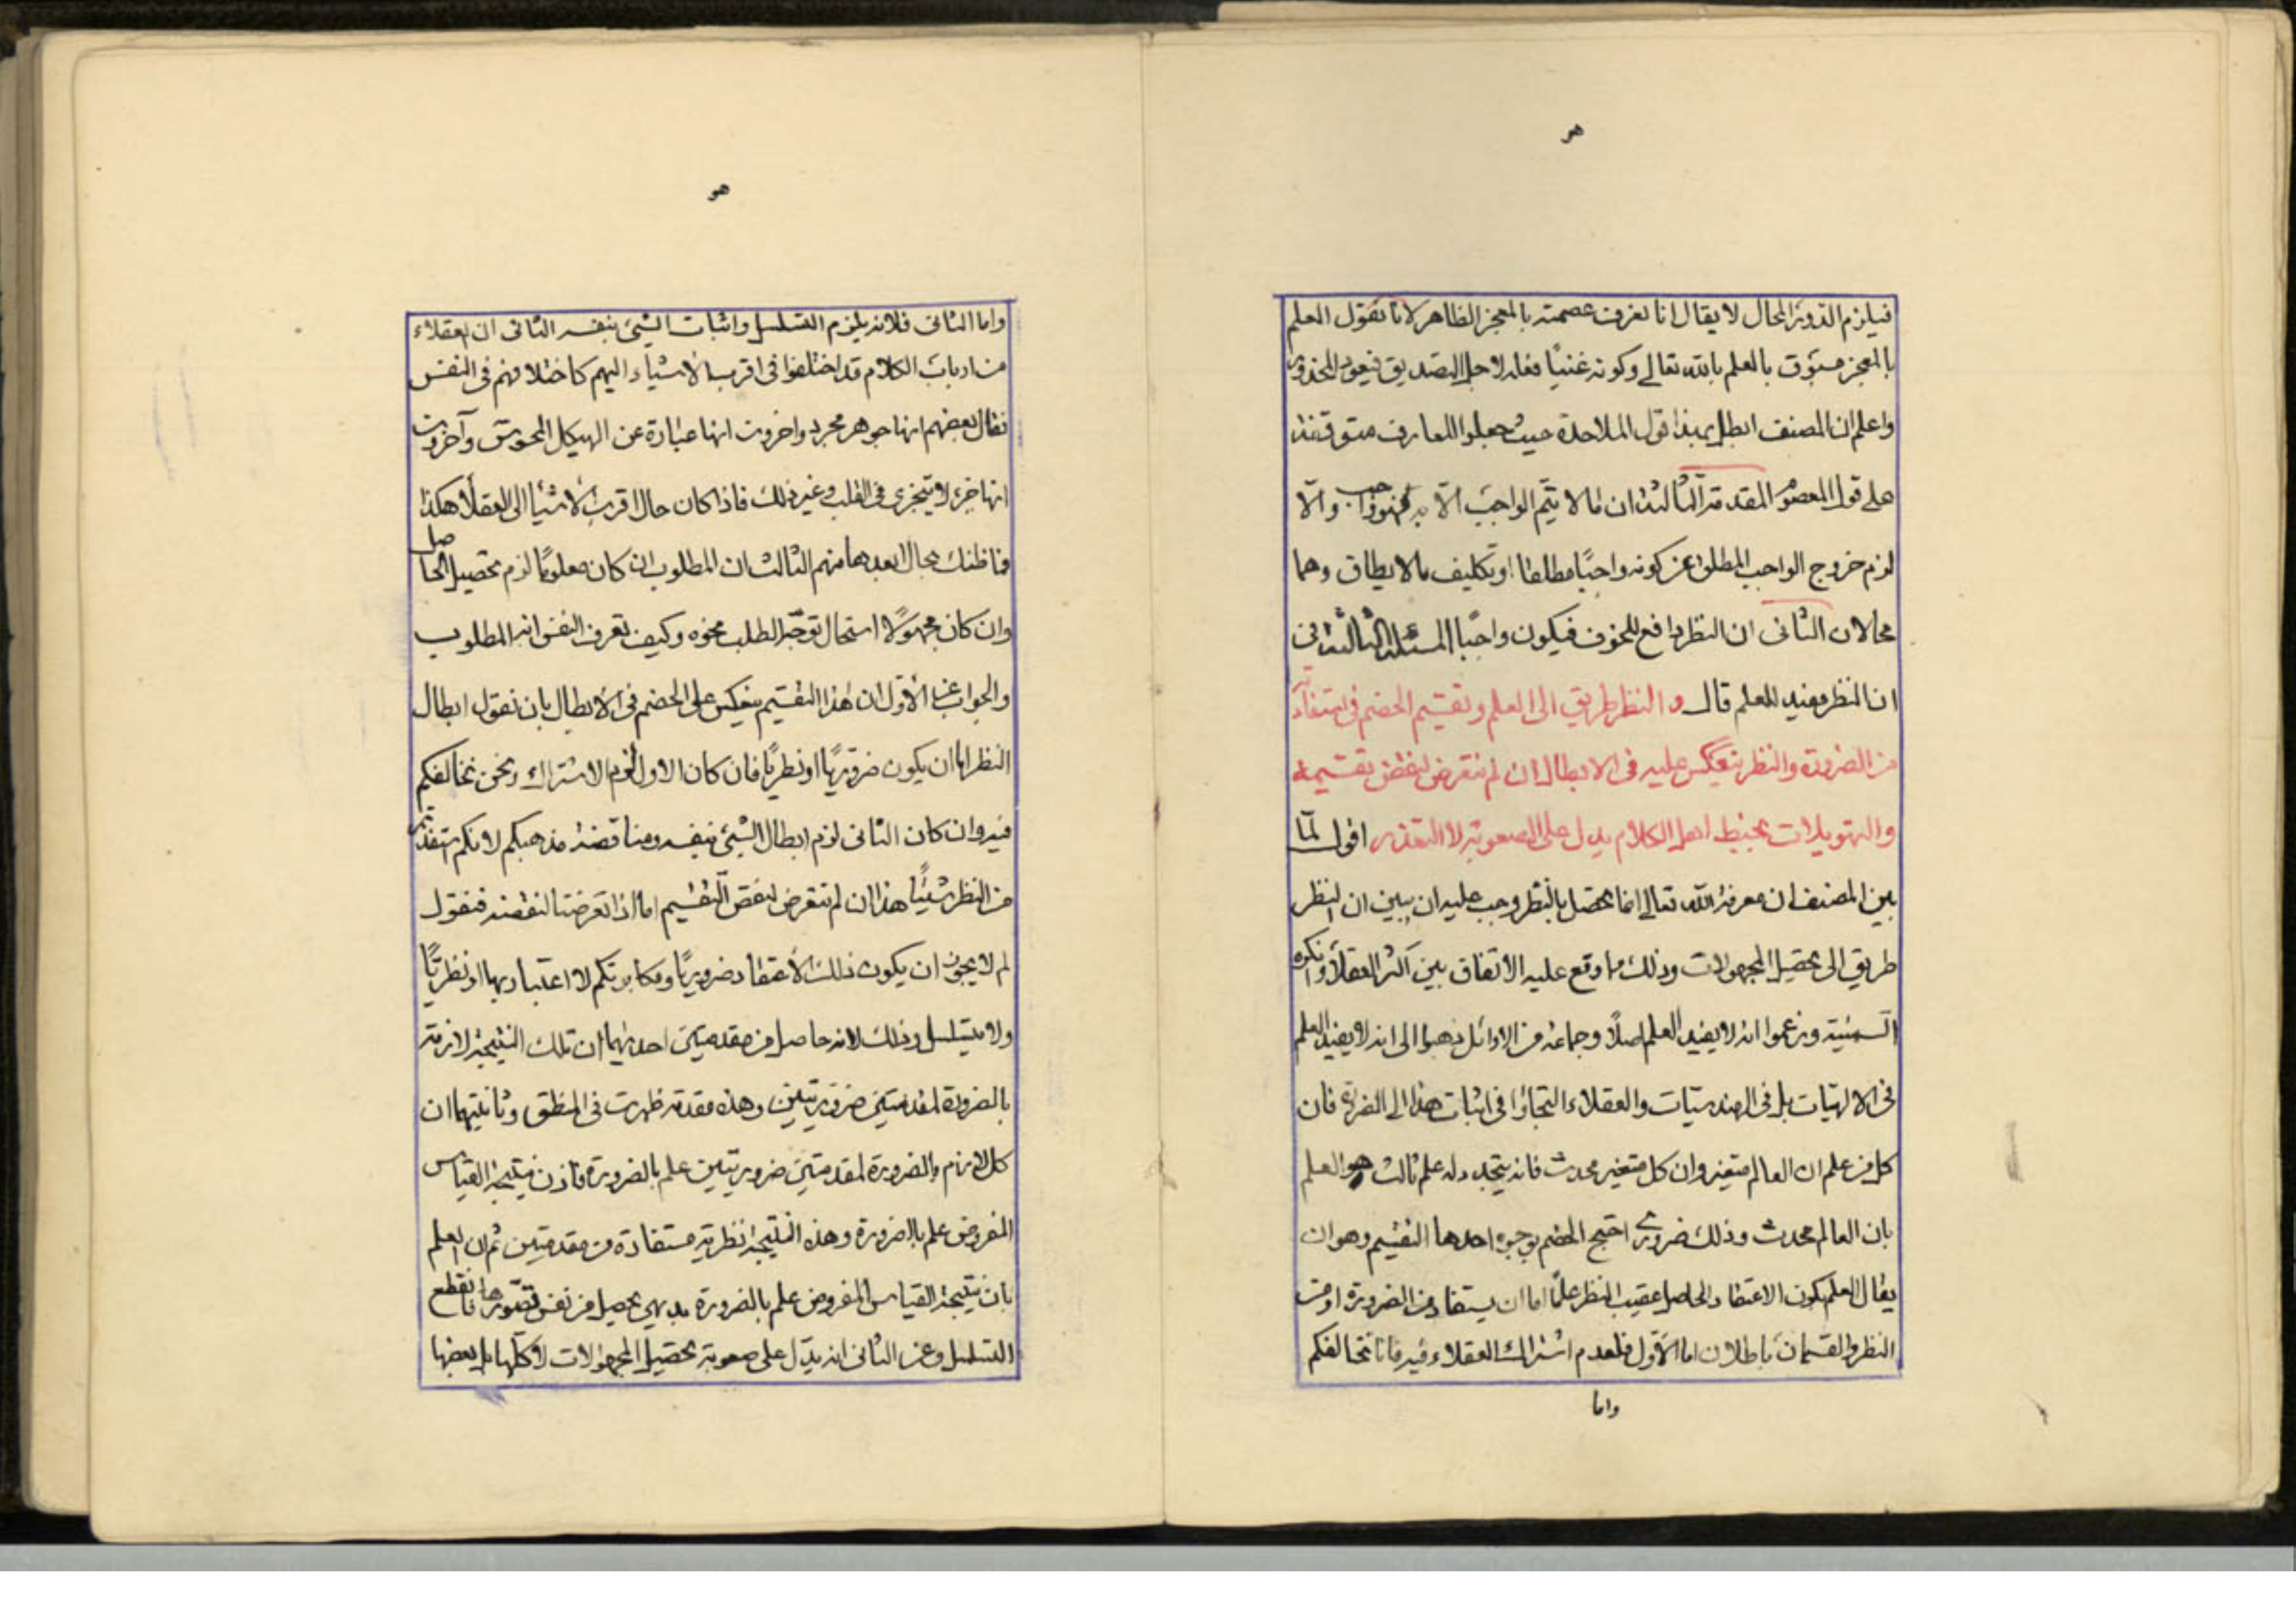 هو
فيلزم الدور المحال لا يقال انا نعرف عصمته بالمعجز الظاهر لانا نقول العلم
بالمعجز مسبوق بالعلم بالله تعالى وكونه غنيًا فعله لاجل التصديق فيعود المحذور
واعلم ان المصنف ابطل بهذا قول الملاحدة حيث جعلوا المعارف متوقفة
على قول المعصوم المقدمة الثالثة ان ما لا يتم الواجب الا به فهو واجب والّا
لزم خروج الواجب المطلق عن كونه واجبًا مطلقا او تكليف ما لا يطاق وهما
محالان الثانى ان النظر دافع للخوف فيكون واجبًا المسئلة الثالثة فى
ان النظر مفيد للعلم قال و النظر طريق الى العلم وتقسيم الخصم فى استفادته
من الضرورة والنظر ينعكس عليه فى الابطال ان لم نتعرض لنقض تقسيمه
والتهويلات بخبط اهل الكلام يدل على الصعوبة لا التعذر اقول لمّا
بين المصنف ان معرفة الله تعالى انما تحصل بالنظر وجب عليه ان يبين ان النظر
طريق الى تحصيل المجهولات وذلك مما وقع عليه الاتفاق بين اكثر العقلاء وانكره
السمنية وزعموا انه لا يفيد العلم اصلًا وجماعة من الاوائل ذهبوا الى انه لا يفيد العلم
فى الالهيات بل فى الهندسيات والعقلاء التجاؤا فى اثبات هذا الى الضرورة فان
كل من علم ان العالم متغير وان كل متغير محدث فانه يتجدد له علم ثالث هو العلم
بان العالم محدث وذلك ضرورى احتج الخصم بوجوه احدها التقسيم وهو ان
يقال العلم بكون الاعتقاد الحاصل عقيب النظر علمًا اما ان يستفاد من الضرورة او من
النظر والقسمان باطلان اما الاول فلعدم اشتراك العقلاء فيه فانا نخالفكم
واما
هو
واما الثانى فلانه يلزم التسلسل واثبات الشىء بنفسه الثانى ان العقلاء
من ارباب الكلام قد اختلفوا فى اقرب الاشياء اليهم كاختلافهم فى النفس
فقال بعضهم انها جوهر مجرد واخرون انها عبارة عن الهيكل المحسوس وآخرون
انها جزء لا يتجزى فى القلب وغير ذلك فاذا كان حال اقرب الاشياء الى العقلاء هكذا
فما ظنك بحال ابعدها منهم الثالث ان المطلوب ان كان معلومًا لزم تحصيل الحاصل
وان كان مجهولًا استحال توجّه الطلب نحوه وكيف تعرف النفس انه المطلوب
والجواب عن الاول ان هذا التقسيم ينعكس على الخصم فى الابطال بان نقول ابطال
النظر اما ان يكون ضروريًا او نظريًا فان كان الاول لزم الاشتراك ونحن نخالفكم
فيه وان كان الثانى لزم ابطال الشىء بنفسه ومناقضة مذهبكم لانكم استفدتم
من النظر شيئًا هذا ان لم نتعرض لنقض التقسيم اما اذا تعرضنا لنقضه فنقول
لم لا يجوز ان يكون ذلك الاعتقاد ضروريًا ومكابرتكم لا اعتبار بها او نظريًا
ولا يتسلسل وذلك لانه حاصل من مقدمتين احديهما ان تلك النتيجة لازمة
بالضرورة لمقدمتين ضروريتين وهذه مقدمة ظهرت فى المنطق وثانيتهما ان
كل لازم بالضرورة لمقدمتين ضروريتين علم بالضرورة فاذن نتيجة القياس
المفروض علم بالضرورة وهذه النتيجة نظرية مستفادة من مقدمتين ثم ان العلم
بان نتيجة القياس المفروض علم بالضرورة بديهى يحصل من نفس تصورها فانقطع
التسلسل وعن الثانى انه يدل على صعوبة تحصيل المجهولات لا كلها بل بعضها